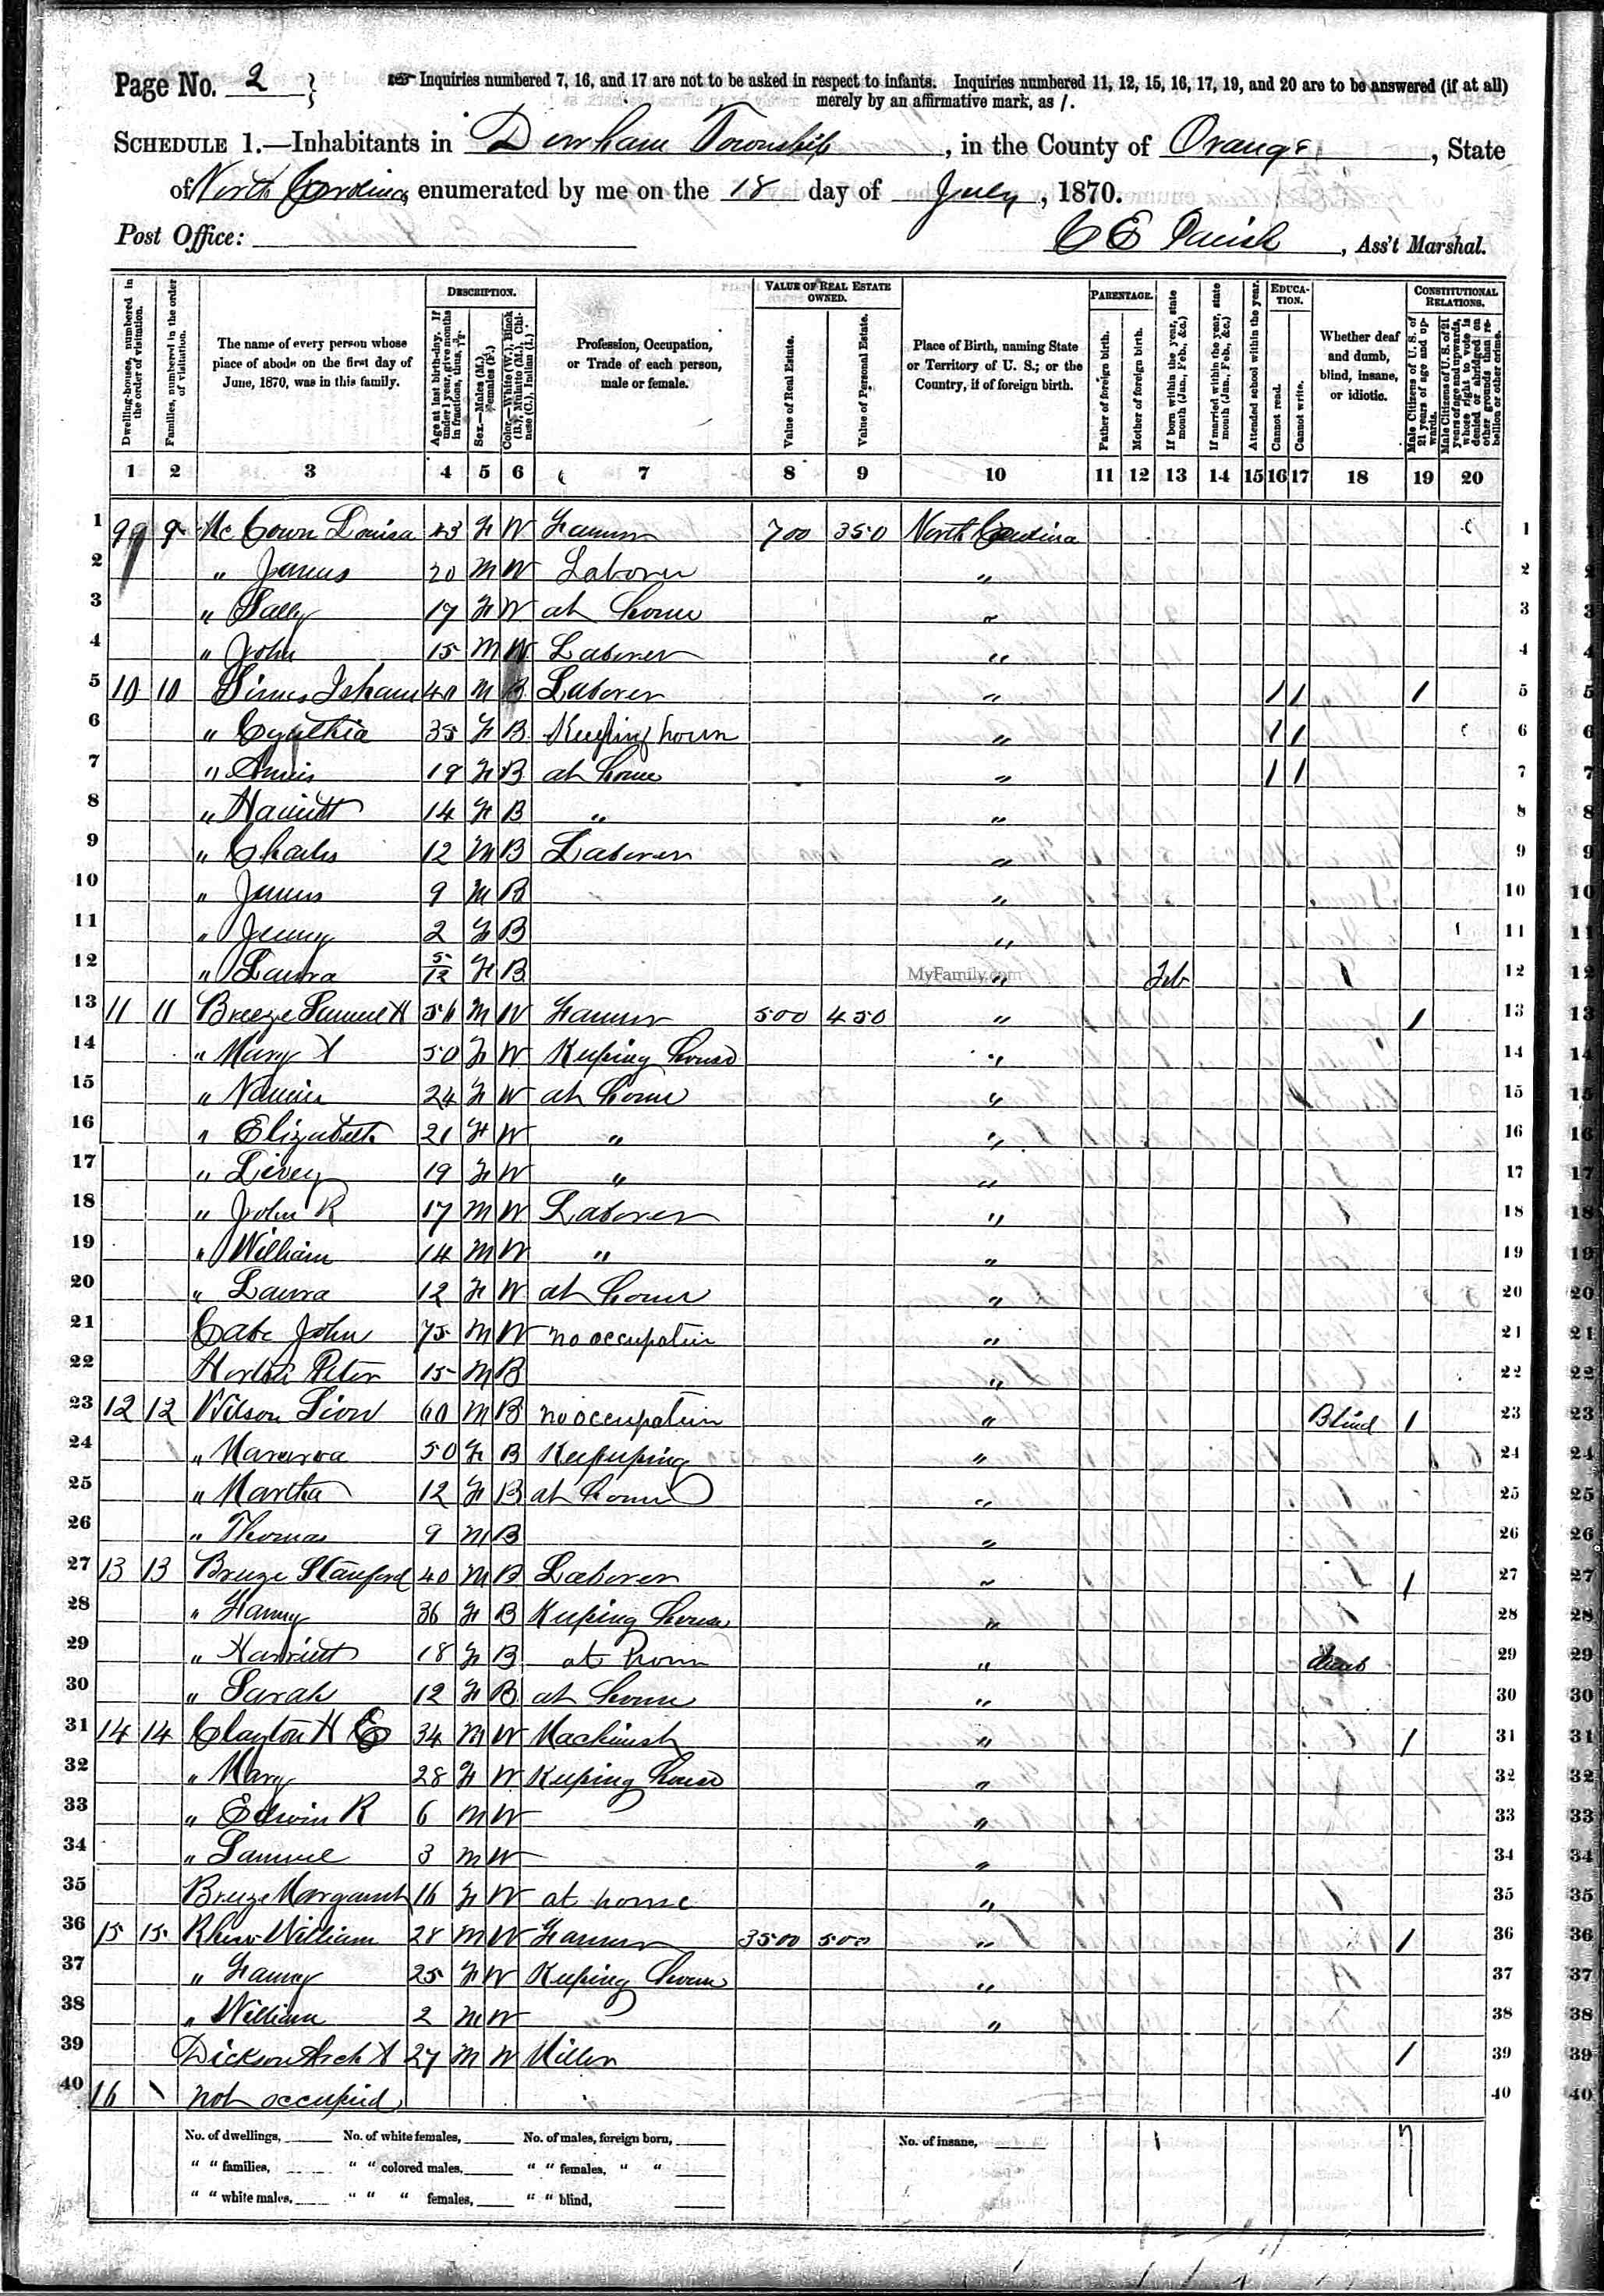 Page No. 2 } Inquiries numbered 7, 16, and 17 are not to be asked in respect to infants. Inquiries numbered 11, 12, 15, 16, 17, 19, and 20 are to be answered (if at all)
merely by an affirmative mark, as /.
SCHEDULE 1.—Inhabitants in Durham Township, in the County of Orange, State
of North Carolina, enumerated by me on the 18 day of July, 1870.
Post Office: C E Parish, Ass't Marshal.
Dwelling-houses, numbered in the order of visitation.
Families, numbered in the order of visitation.
The name of every person whose place of abode on the first day of June, 1870, was in this family.
DESCRIPTION.
Age at last birth-day. If under 1 year, give months in fractions, thus, 3/12.
Sex.—Males (M.), Females (F.)
Color.—White (W.), Black (B.), Mulatto (M.), Chinese (C.), Indian (I.).
Profession, Occupation, or Trade of each person, male or female.
VALUE OF REAL ESTATE OWNED.
Value of Real Estate.
Value of Personal Estate.
Place of Birth, naming State or Territory of U. S.; or the Country, if of foreign birth.
PARENTAGE.
Father of foreign birth.
Mother of foreign birth.
If born within the year, state month (Jan., Feb., &c.)
If married within the year, state month (Jan., Feb., &c.)
Attended school within the year.
EDUCATION.
Cannot read.
Cannot write.
Whether deaf and dumb, blind, insane, or idiotic.
CONSTITUTIONAL RELATIONS.
Male Citizens of U. S. of 21 years of age and upwards.
Male Citizens of U. S. of 21 years of age and upwards, whose right to vote is denied or abridged on other grounds than rebellion or other crime.
1 2 3 4 5 6 7 8 9 10 11 12 13 14 15 16 17 18 19 20
1 9 9 Mc Cown Louisa 43 F W Farmer 700 350 North Carolina 1
2 " James 20 M W Laborer " 2
3 " Sally 17 F W at home " 3
4 " John 15 M W Laborer " 4
5 10 10 Isham 40 M B Laborer " / / / 5
6 " Cynthia 35 F B Keeping house " / / 6
7 " Annis 19 F B at home " / / 7
8 " Harriett 14 F B " " 8
9 " Charles 12 M B Laborer " 9
10 " James 9 M B " 10
11 " Jenny 2 F B " 11
12 " Laura 5/12 F B MyFamily.com " Feb 12
13 11 11 Breeze Samuel H 56 M W Farmer 500 450 " / 13
14 " Mary 50 F W Keeping house " 14
15 " Nannie 24 F W at home " 15
16 " Elizabeth 21 F W " " 16
17 " Livey 19 F W " " 17
18 " John R 17 M W Laborer " 18
19 " William 14 M W " " 19
20 " Laura 12 F W at home " 20
21 Cabe John 75 M W no occupation " 21
22 Peter 15 M B " 22
23 12 12 Wilson Lion 60 M B no occupation " Blind / 23
24 " 50 F B " 24
25 " Martha 12 F B at home " 25
26 " Thomas 9 M B " 26
27 13 13 Breeze Stanford 40 M B Laborer " / 27
28 " Fanny 36 F B Keeping house " 28
29 " Harriett 18 F B at home " 29
30 " Sarah 12 F B at home " 30
31 14 14 Clayton H E 34 M W Machinist " / 31
32 " Mary 28 F W Keeping house " 32
33 " Edwin R 6 M W " 33
34 " Samuel 3 M W " 34
35 Breeze Margaret 16 F W at home " 35
36 15 15 William 28 M W Farmer 3500 500 " / 36
37 " Fanny 25 F W Keeping house " 37
38 " William 2 M W " 38
39 Dickson Arch 27 M W Miller / 39
40 16 \ not occupied 40
No. of dwellings, No. of white females, No. of males, foreign born, No. of insane, 1 7
" " families, " " colored males, " " females, " "
" " white males, " " " females, " " blind,